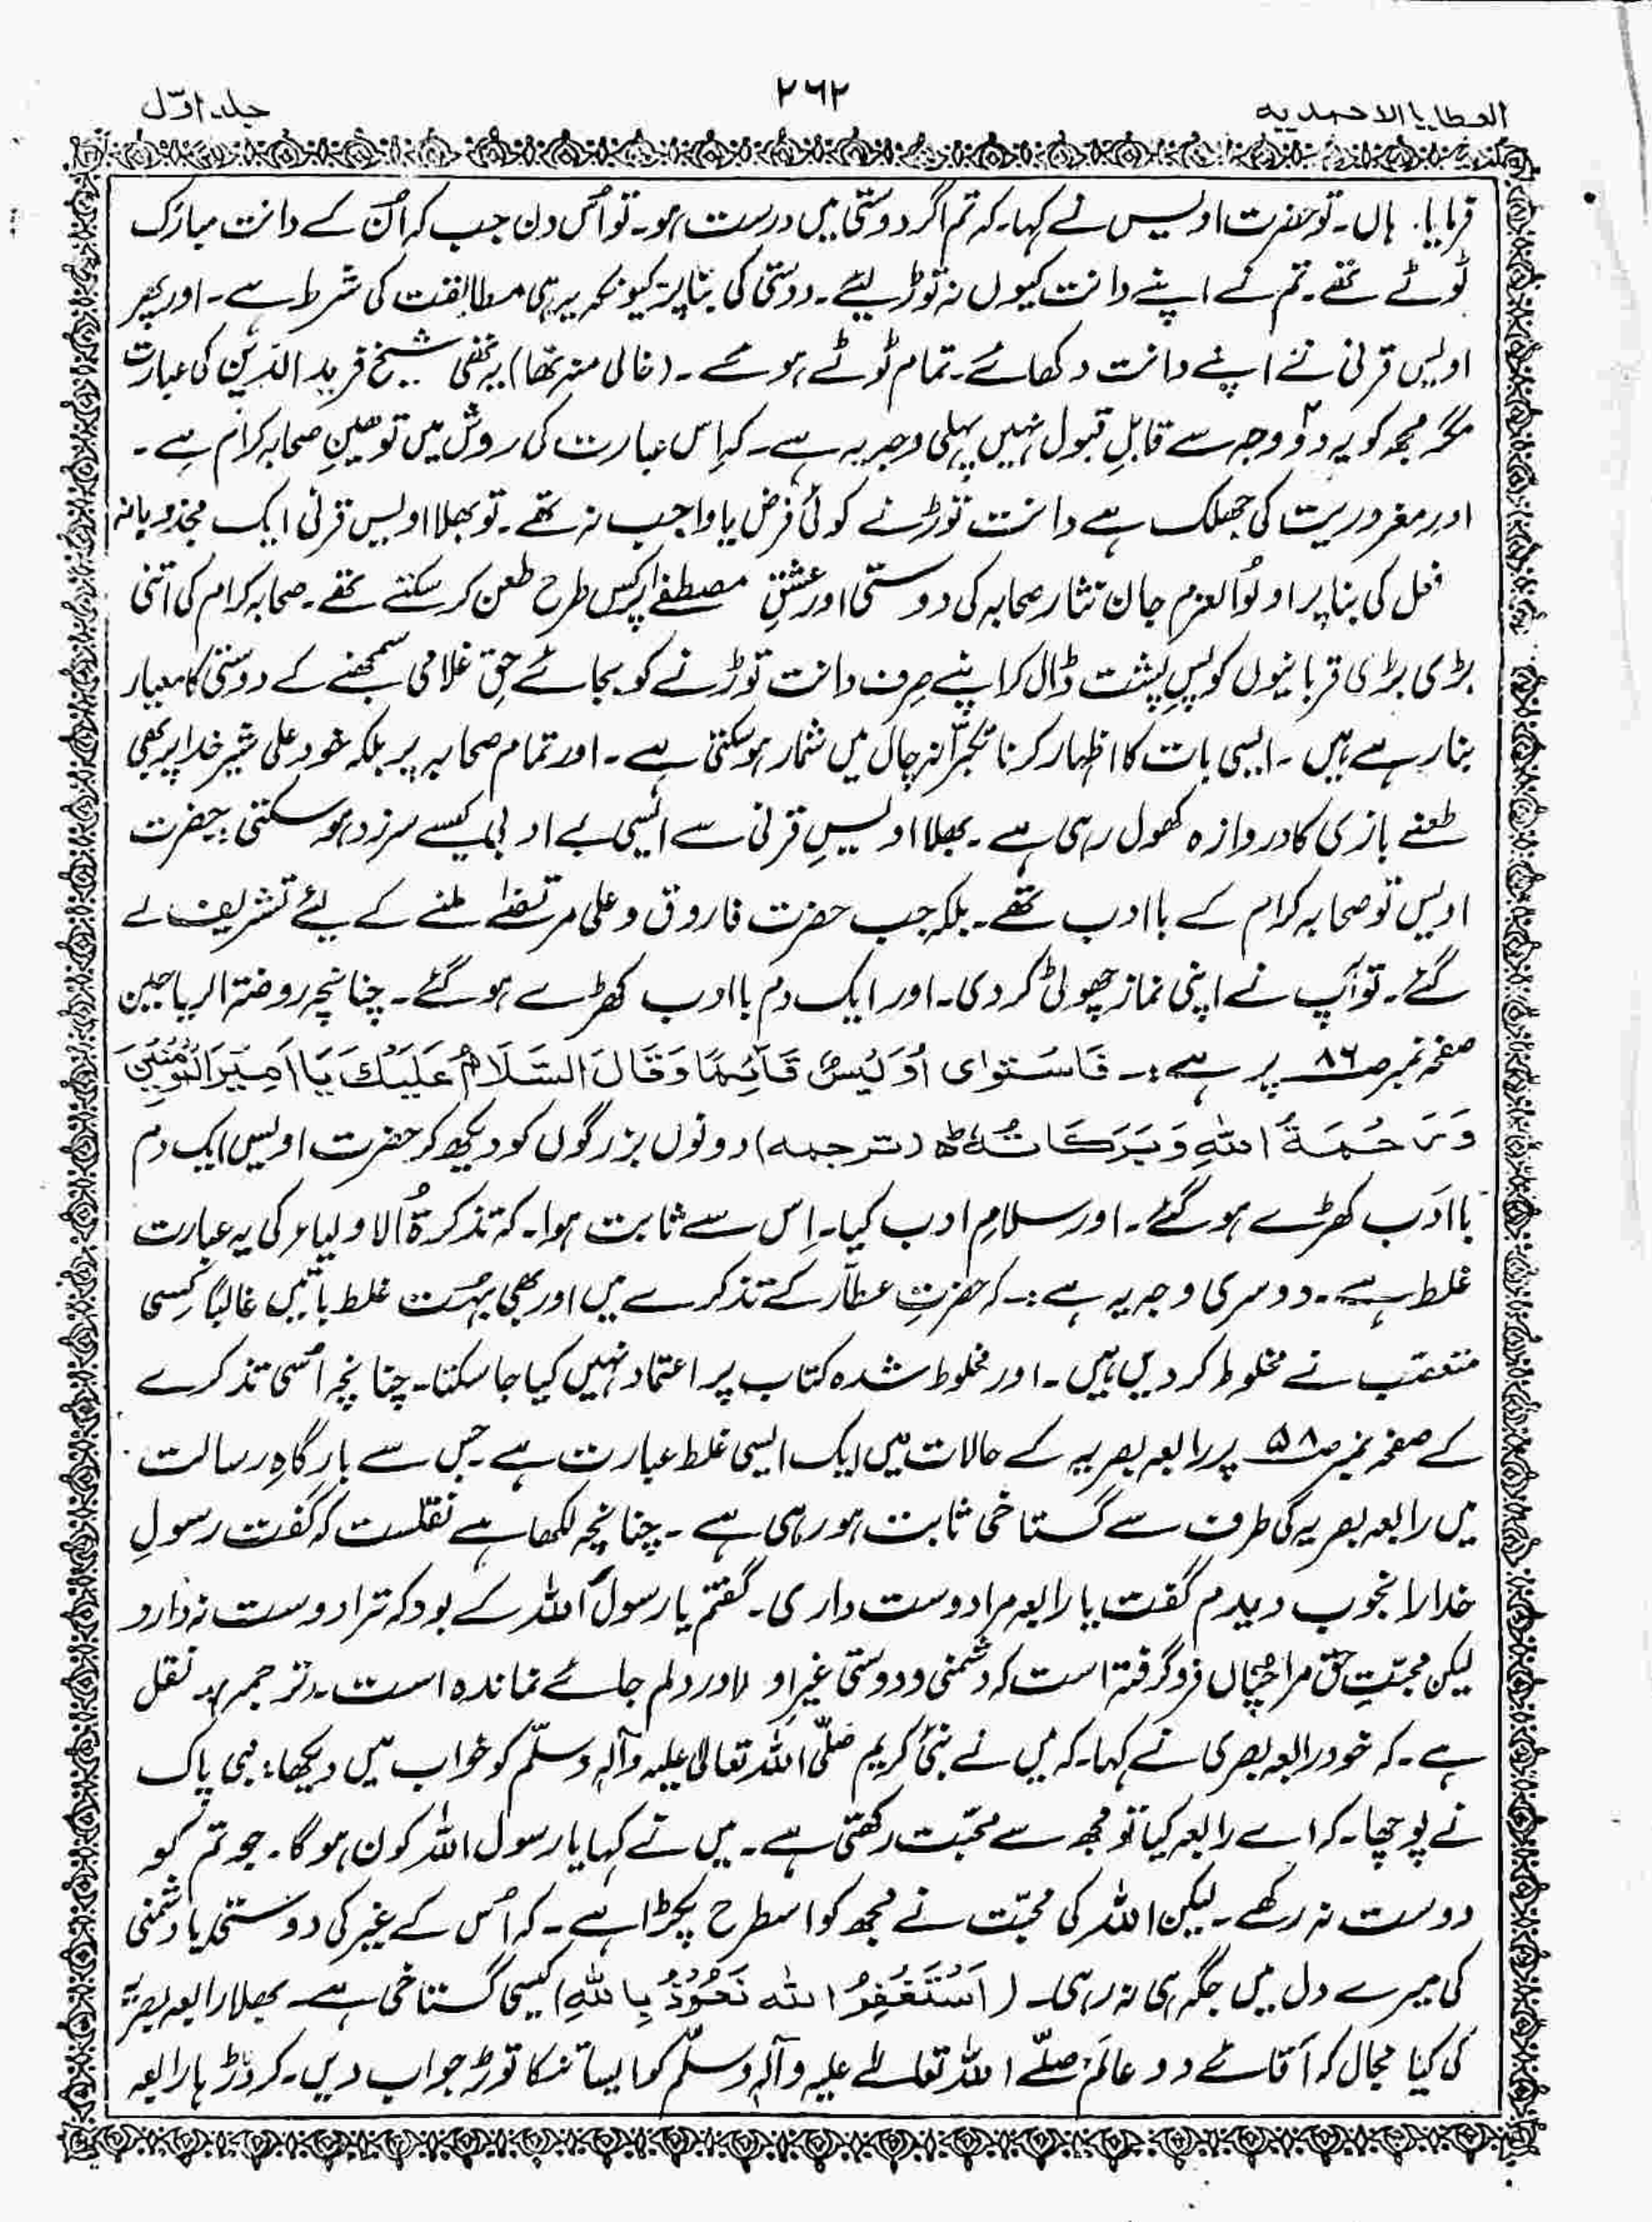 العطایا الاحمدیہ
۲۶۲
جلد اوّل
فرمایا۔ ہاں۔ تو حضرت اویس نے کہا۔ کہ تم اگر دوستی میں درست ہو۔ تو اُس دن جب کہ اُن کے دانت مبارک
ٹوٹے تھے۔ تم نے اپنے دانت کیوں نہ توڑ لیئے۔ دوستی کی بنا پر کیونکہ یہ ہی مطابقت کی شرط ہے۔ اور پھر
اویس قرنی نے اپنے دانت دکھائے۔ تمام ٹوٹے ہوئے۔ (خالی منہ تھا) یہ تھی شیخ فرید الدّین کی عبارت
مگر مجھ کو یہ دوؔ وجہ سے قابلِ قبول نہیں پہلی وجہ یہ ہے۔ کہ اِس عبارت کی روش میں توہینِ صحابہ کرام ہے۔
اور مغروریت کی جھلک ہے دانت توڑنے کوئی فرض یا واجب نہ تھے۔ تو بھلا اویس قرنی ایک مجذوبانہ
فعل کی بنا پر اولُوالعزم جان نثار صحابہ کی دوستی اور عشقِ مصطفےٰ پر کِس طرح طعن کر سکتے تھے۔ صحابہ کرام کی اتنی
بڑی بڑی قربانیوں کو پسِ پشت ڈال کر اپنے صِرف دانت توڑنے کو بجائے حقِ غلامی سمجھنے کے دوستی کا معیار
بنا رہے ہیں۔ ایسی بات کا اظہار کرنا متکبّرانہ چال میں شمار ہو سکتی ہے۔ اور تمام صحابہ پر بلکہ خود علی شیرِ خدا پر بھی
طعنے بازی کا دروازہ کھول رہی ہے۔ بھلا اویسِ قرنی سے ایسی بے ادبی کیسے سرزد ہو سکتی ہے حضرت
اویس تو صحابہ کرام کے باادب تھے۔ بلکہ جب حضرت فاروق و علی مرتضےٰ ملنے کے لیئے تشریف لے
گئے۔ تو آپ نے اپنی نماز چھوٹی کر دی۔ اور ایک دم باادب کھڑے ہو گئے۔ چنانچہ روضۃ الریاحین
صفحہ نمبر صـ۸۶ پر ہے:۔ فَاسْتَوٰای اُوَیْسٌ قَآئِمًا وَقَالَ السَّلَامُ عَلَیْكَ یَا اَمِیْرَ الْمُؤْمِنِیْنَ
وَرَحْمَةُ اللّٰہِ وَبَرَکَاتُہٗ ط (ترجمہ) دونوں بزرگوں کو دیکھ کر حضرت اویس ایک دم
باادَب کھڑے ہو گئے۔ اور سلامِ ادب کیا۔ اِس سے ثابت ہوا۔ کہ تذکرۃُ الاولیاء کی یہ عبارت
غلط ہے۔ دوسری وجہ یہ ہے:۔ کہ حضرتِ عطّار کے تذکرے میں اور بھی بہُت غلط باتیں غالبًا کِسی
متعصّب نے مخلوط کر دیں ہیں۔ اور مخلوط شدہ کتاب پر اعتماد نہیں کیا جا سکتا۔ چنانچہ اُسی تذکرے
کے صفحہ نمبر صـ۵۸ پر رابعہ بصریہ کے حالات میں ایک ایسی غلط عبارت ہے جس سے بارگاہِ رسالت
میں رابعہ بصریہ کی طرف سے گستاخی ثابت ہو رہی ہے۔ چنانچہ لکھا ہے نقلست کہ گفت رسولِ
خدا را بخوب دیدم گفت یا رابعہ مرا دوست داری۔ گفتم یا رسولَ اللہ کے بود کہ ترا دوست نہ دارد
لیکن محبّتِ حق مرا چُناں فرو گرفتہ است کہ دشمنی و دوستی غیرِ او را در دلم جائے نماندہ است۔ (ترجمہ)۔ نقل
ہے۔ کہ خود رابعہ بصری نے کہا۔ کہ میں نے نبیٔ کریم صلّی اللہ تعالیٰ علیہ وآلہٖ وسلّم کو خواب میں دیکھا: نبی پاک
نے پوچھا۔ کہ اے رابعہ کیا تو مجھ سے محبّت رکھتی ہے۔ میں نے کہا یا رسول اللہ کون ہو گا۔ جو تم کو
دوست نہ رکھے۔ لیکن اللہ کی محبّت نے مجھ کو اسطرح پکڑا ہے۔ کہ اُس کے غیر کی دوستی یا دشمنی
کی میرے دل میں جگہ ہی نہ رہی۔ (اَسْتَغْفِرُ اللہ نَعُوْذُ بِاللّٰہِ) کیسی گستاخی ہے۔ بھلا رابعہ بصریّہ
کی کیا مجال کہ آقائے دو عالَم صلّے اللہ تعالےٰ علیہ وآلہٖ وسلّم کو ایسا تنکا توڑ جواب دیں۔ کروڑہا رابعہ